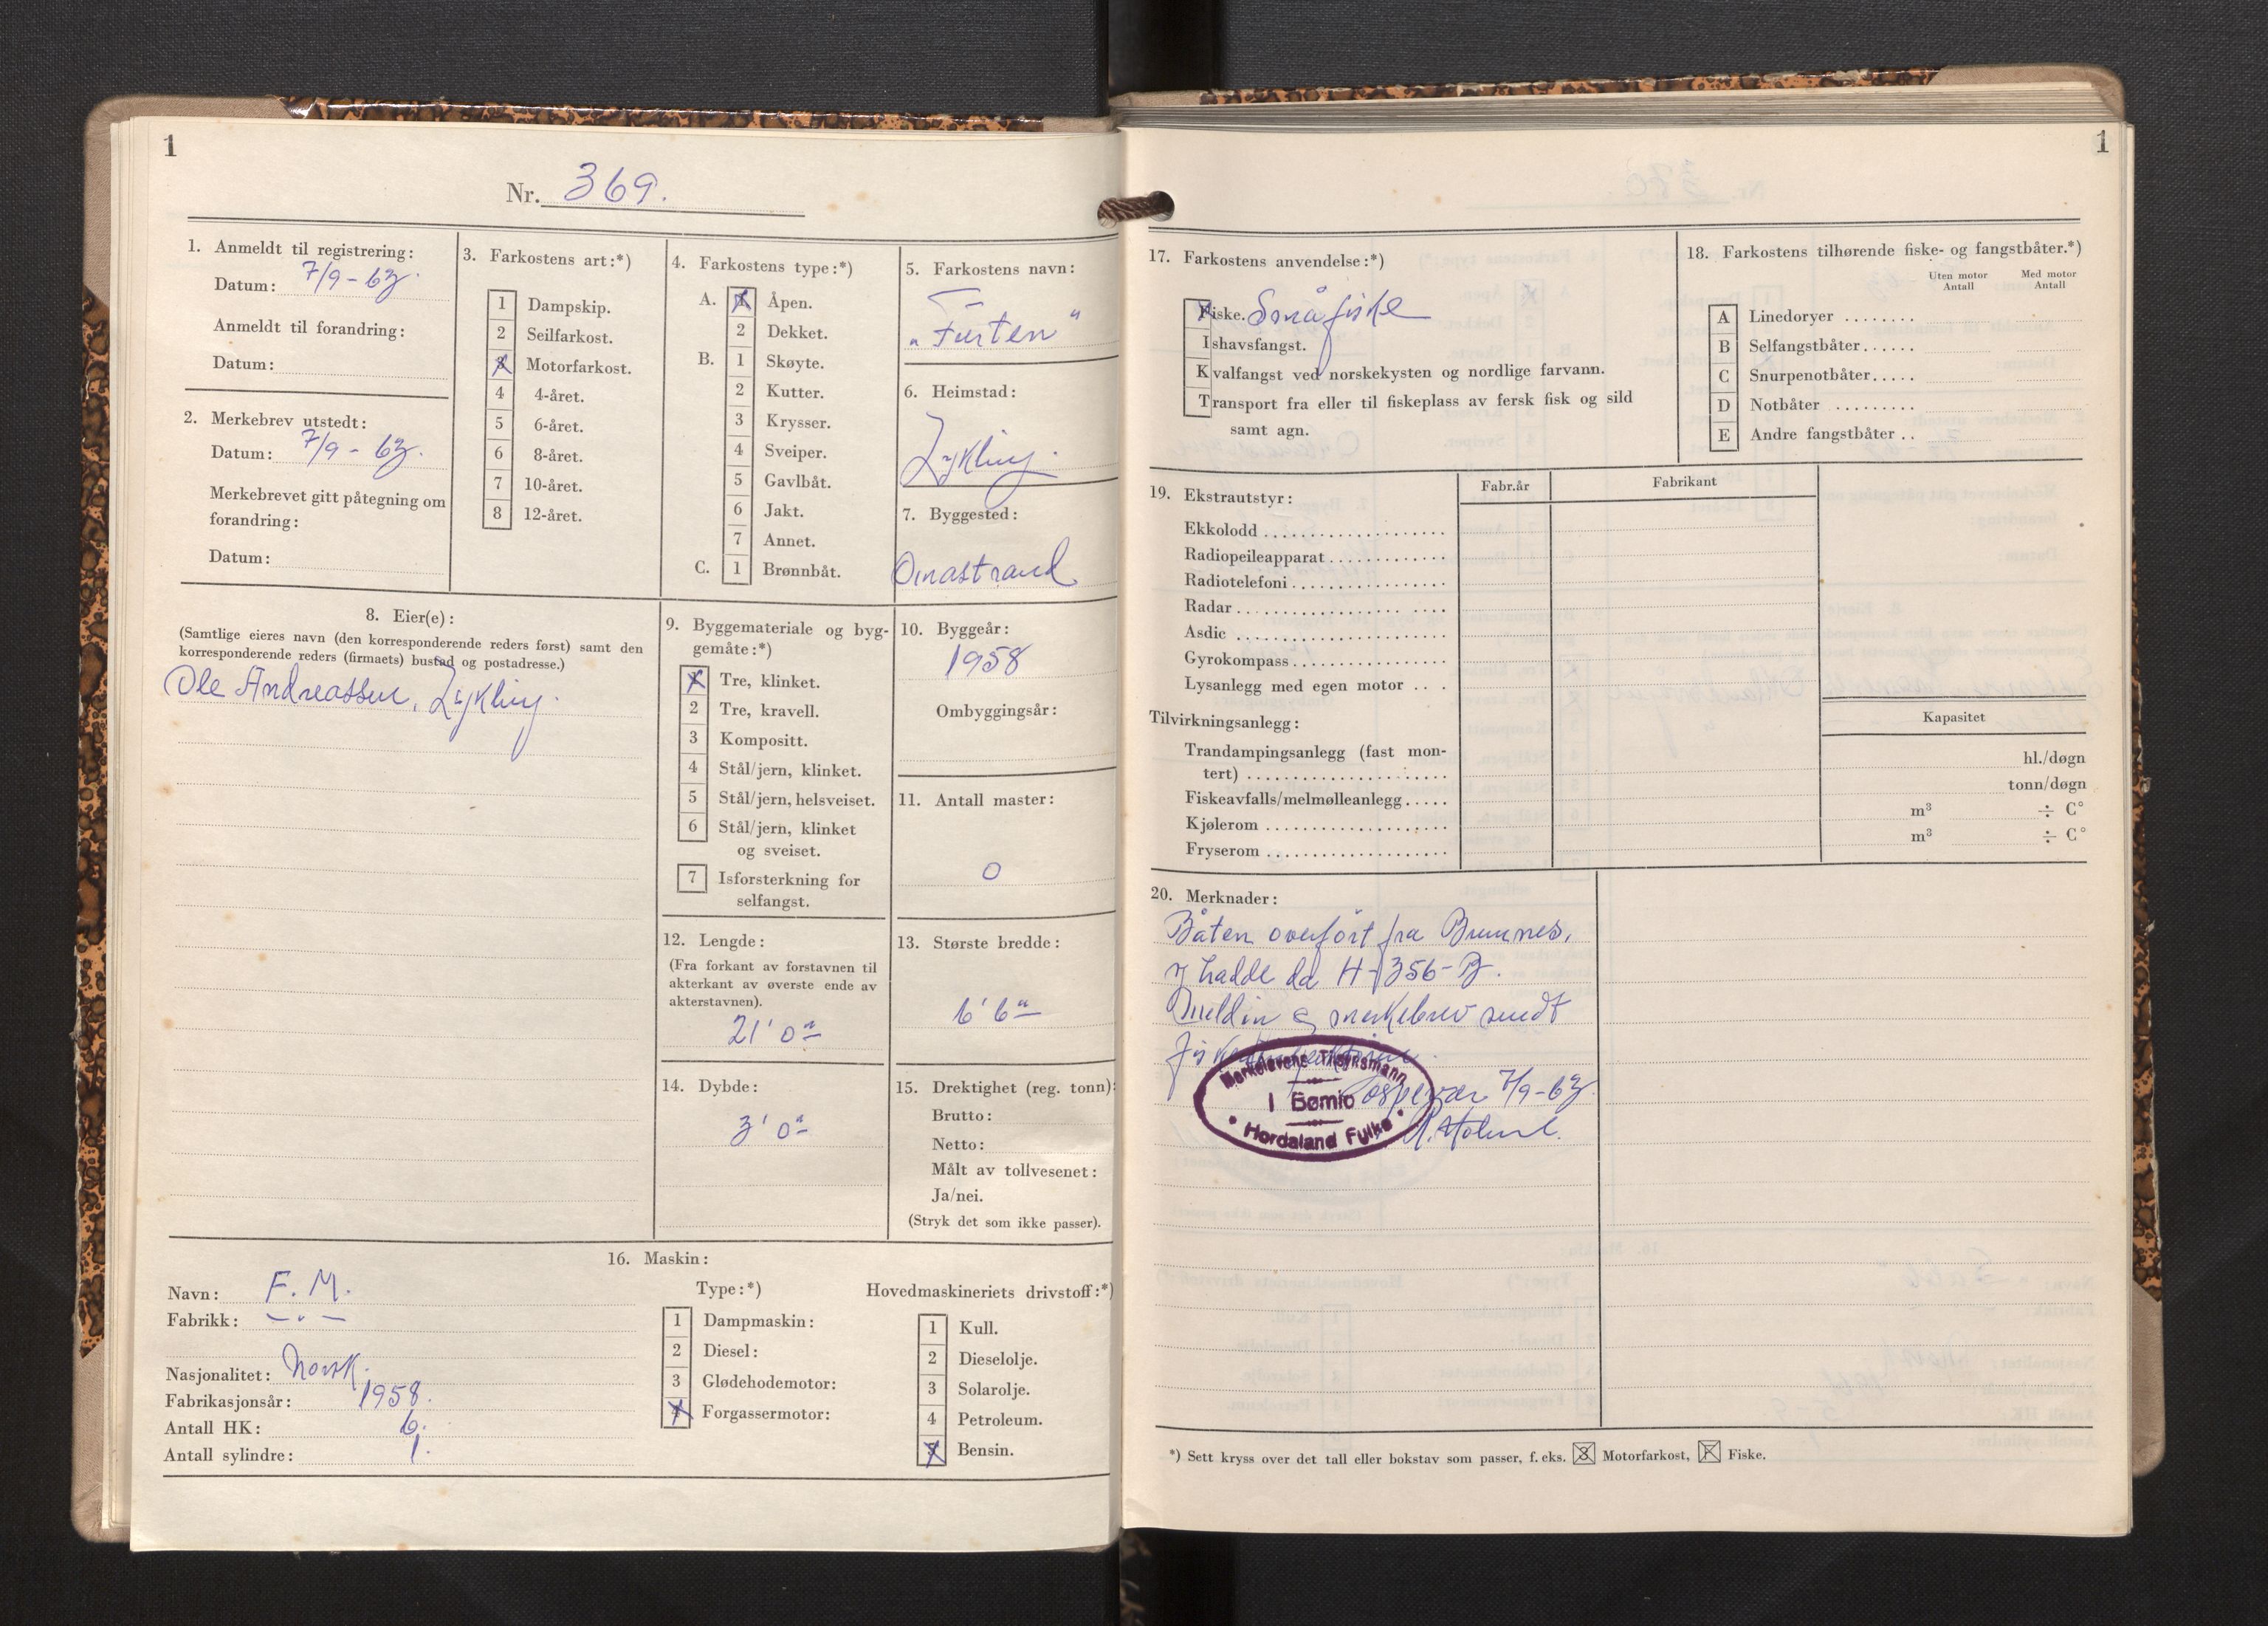 1
Nr. 369.
1. Anmeldt til registrering:
Datum: 7/9-63.
Anmeldt til forandring:
Datum:
2. Merkebrev utstedt:
Datum: 7/9-63.
Merkebrevet gitt påtegning om
forandring:
Datum:
3. Farkostens art:*)
1 Dampskip.
2 Seilfarkost.
3 Motorfarkost.
4 4-året.
5 6-året.
6 8-året.
7 10-året.
8 12-året.
4. Farkostens type:*)
A. 1 Åpen.
2 Dekket.
B. 1 Skøyte.
2 Kutter.
3 Krysser.
4 Sveiper.
5 Gavlbåt.
6 Jakt.
7 Annet.
C. 1 Brønnbåt.
5. Farkostens navn:
6. Heimstad:
Lykling.
7. Byggested:
Omastrand
8. Eier(e):
(Samtlige eieres navn (den korresponderende reders først) samt den
korresponderende reders (firmaets) bustad og postadresse.)
Ole Andreassen, Lykling.
9. Byggemateriale og byg-
gemåte:*)
1 Tre, klinket.
2 Tre, kravell.
3 Kompositt.
4 Stål/jern, klinket.
5 Stål/jern, helsveiset.
6 Stål/jern, klinket
og sveiset.
7 Isforsterkning for
selfangst.
10. Byggeår:
1958
Ombyggingsår:
11. Antall master:
0
12. Lengde:
(Fra forkant av forstavnen til
akterkant av øverste ende av
akterstavnen).
21' 0"
13. Største bredde:
6' 6"
14. Dybde:
3' 0"
15. Drektighet (reg. tonn):
Brutto:
Netto:
Målt av tollvesenet:
Ja/nei.
(Stryk det som ikke passer).
16. Maskin:
Navn: F. M.
Fabrikk: — " —
Nasjonalitet: Norsk.
Fabrikasjonsår: 1958.
Antall HK: 6.
Antall sylindre: 1.
Type:*)
1 Dampmaskin:
2 Diesel:
3 Glødehodemotor:
4 Forgassermotor:
Hovedmaskineriets drivstoff:*)
1 Kull.
2 Dieselolje.
3 Solarolje.
4 Petroleum.
5 Bensin.
1
17. Farkostens anvendelse:*)
Fiske. Småfiske
Ishavsfangst.
Kvalfangst ved norskekysten og nordlige farvann.
Transport fra eller til fiskeplass av fersk fisk og sild
samt agn.
18. Farkostens tilhørende fiske- og fangstbåter.*)
Uten motor Med motor
Antall Antall
A Linedoryer ........
B Selfangstbåter......
C Snurpenotbåter.....
D Notbåter .........
E Andre fangstbåter ..
19. Ekstrautstyr:
Fabr.år Fabrikant
Ekkolodd
Radiopeileapparat
Radiotelefoni
Radar
Asdic
Gyrokompass
Lysanlegg med egen motor ...
Tilvirkningsanlegg:
Kapasitet
Trandampingsanlegg (fast mon-
tert) hl./døgn
Fiskeavfalls/melmølleanlegg..... tonn/døgn
Kjølerom m³ ÷ C°
Fryserom m³ ÷ C°
20. Merknader:
Båten overført fra
hadde da H-356-B.
og merkebrev sendt
Merkelovens Tilsynsmann
I Bømlo
Hordaland Fylke
Espevær 7/9-63
*) Sett kryss over det tall eller bokstav som passer, f. eks. 3 Motorfarkost, F Fiske.